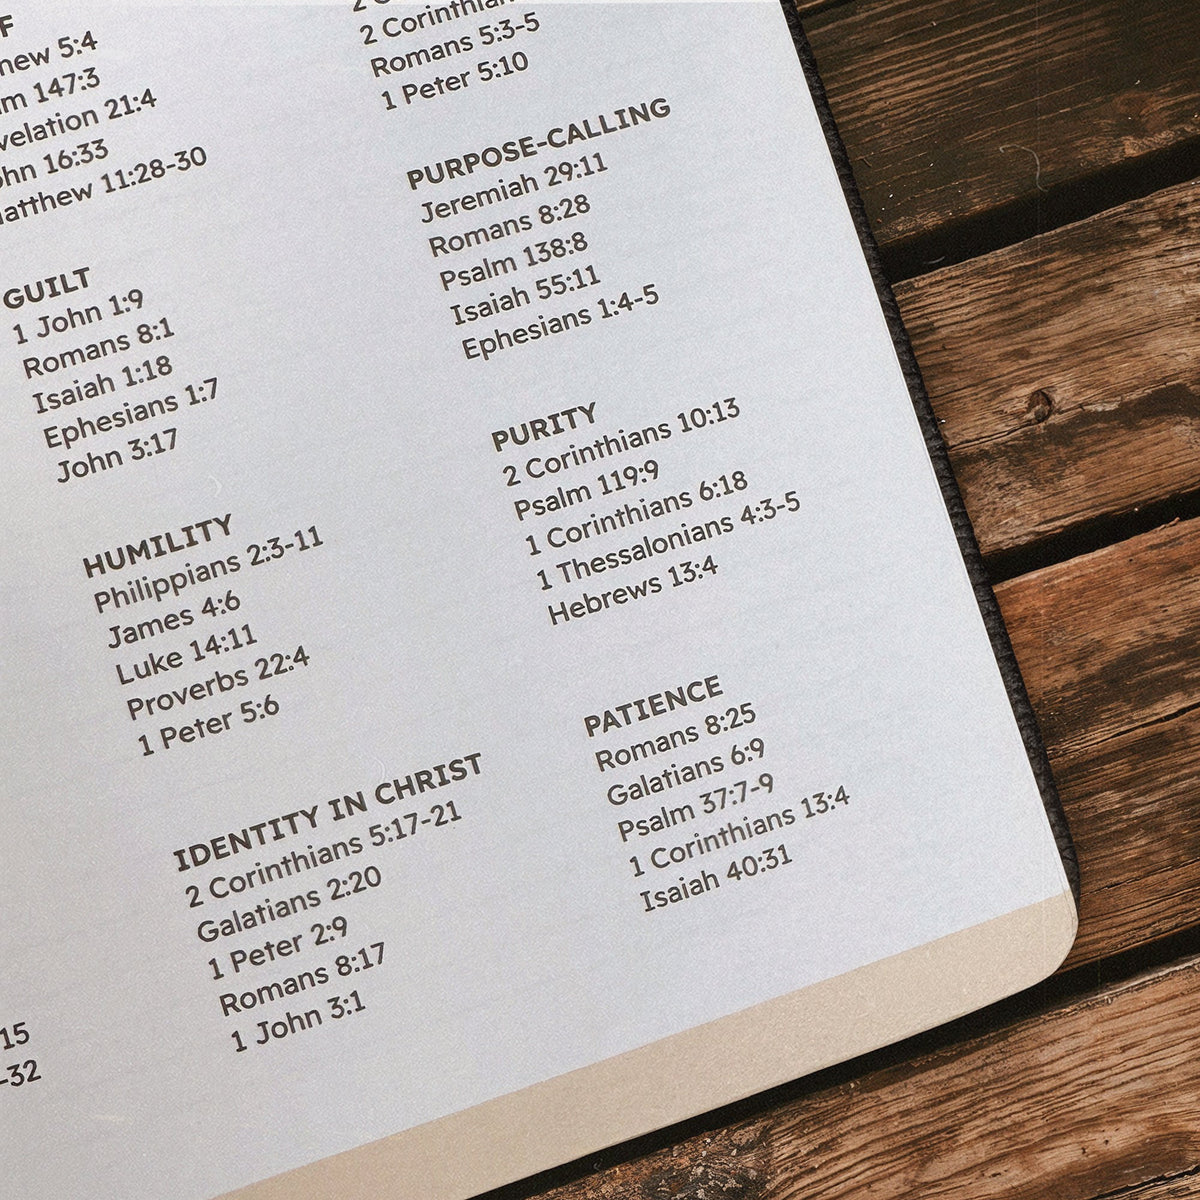 F
5:4
147:3
21:4
16:33
11:28-30
GUILT
1 John 1:9
Romans 8:1
Isaiah 1:18
Ephesians 1:7
John 3:17
HUMILITY
Philippians 2:3-11
James 4:6
Luke 14:11
Proverbs 22:4
1 Peter 5:6
IDENTITY IN CHRIST
2 Corinthians 5:17-21
Galatians 2:20
1 Peter 2:9
Romans 8:17
1 John 3:1
15
-32
2 Corinthian
Romans 5:3-5
1 Peter 5:10
PURPOSE-CALLING
Jeremiah 29:11
Romans 8:28
Psalm 138:8
Isaiah 55:11
Ephesians 1:4-5
PURITY
2 Corinthians 10:13
Psalm 119:9
1 Corinthians 6:18
1 Thessalonians 4:3-5
Hebrews 13:4
PATIENCE
Romans 8:25
Galatians 6:9
Psalm 37:7-9
1 Corinthians 13:4
Isaiah 40:31